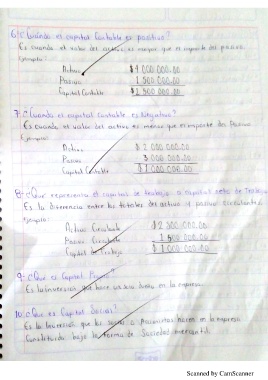 6: ¿Cuándo es capital Contable es positivo?
Es cuando el valor del activo es mayor que el importe del pasivo
Ejemplo:
Activo $4 000 000.00
Pasivo 1 500 000.00
Capital Contable $1 500 000.00
7: ¿Cuando es capital contable es Negativo?
Es cuando el valor del activo es menos que el importe del Pasivo
Ejemplo:
Activo $ 2 000 000.00
Pasivo 3 000 000.00
Capital Contable $1 000 000.00
8: ¿Que representa el capital de trabajo o capital neto de Trabajo
Es la diferencia entre los totales del activo y pasivo circulante
Ejemplo:
Activo Circulante $2 500 000.00
Pasivo Circulante 1 500 000.00
Capital de Trabajo $1 000 000.00
9: ¿Que es Capital
Es la inversion que hace un solo dueño en la empresa.
10: ¿Que es Capital Social?
Es la inversion que los socios o accionistas hacen en la empresa
Constituida bajo la forma de Sociedad mercantil.
Scanned by CamScanner